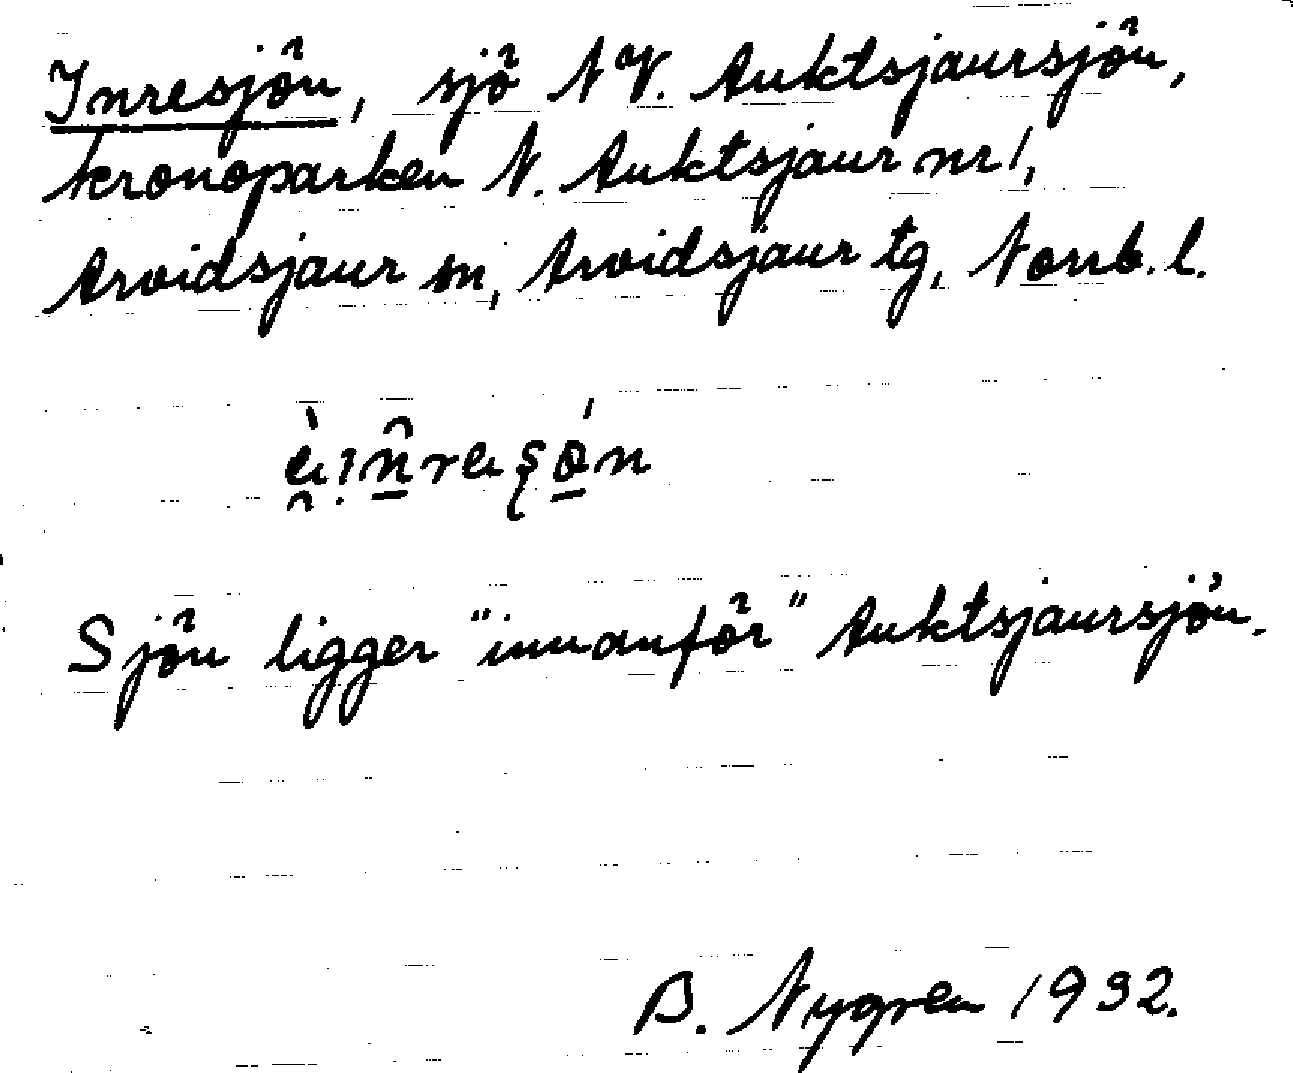 Inresjön, sjö NV. Auktsjaursjön,
kronoparken N. Auktsjaur nr 1,
Arvidsjaur sn, Arvidsjaur tg, Norrb. l.
Sjön ligger "innanför" Auktsjaursjön.
B. Nygren 1932.